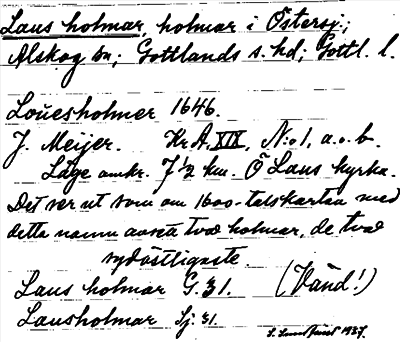 Laus holmar, holmar i Östersj.;
Alskog sn; Gottlands s. hd; Gottl. l.
Louesholmer 1646.
J. Meijer. Kr.A. XIX, N:o 1, a. o. b.
Läge omkr. 7 1/2 km. Ö Laus kyrka.
Det ser ut som om 1600-talskartan med
detta namn avsett två holmar, de två
sydöstligaste.
Laus holmar G. 31. (Vänd!)
Lausholmar Sj. 31.
1937.